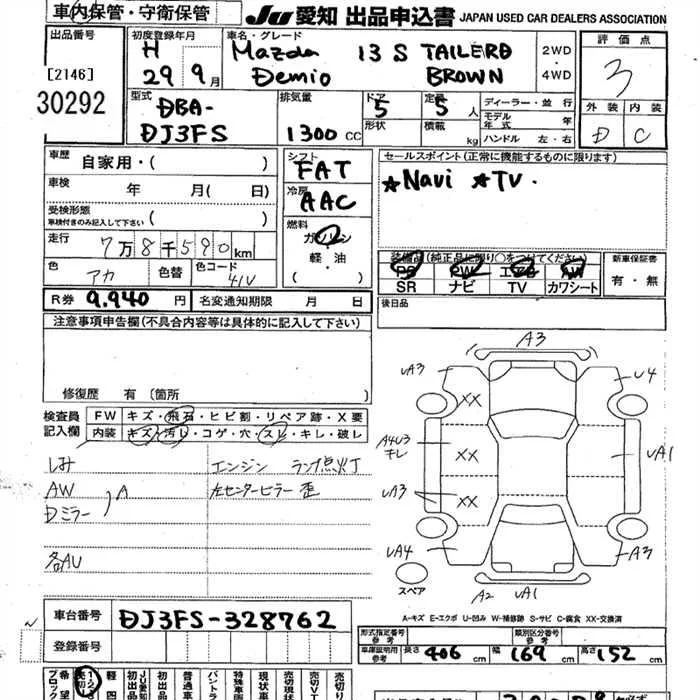 車内保管・守衛保管
Ju 愛知 出品申込書 JAPAN USED CAR DEALERS ASSOCIATION
出品番号
[2146]
30292
初度登録年月
H
29年 9月
車名・グレード
Mazda 13S TAILERD
Demio BROWN
2WD
・
4WD
評価点
3
外装 内装
D C
型式
DBA-
DJ3FS
排気量
1300 CC
ドア
5
形状
定員
5人
積載
kg
ディーラー・並行
モデル年式 年
ハンドル 左・右
車歴
自家用・( )
車検
年 月( 日)
受検形態
車検付きのみ記入して下さい ( )
走行
7万8千590km
色
アカ
色替
色コード
41V
R券 9.940 円
名変通知期限 月 日
シフト
FAT
冷房
AAC
燃料
ガソリン
・
軽・油
( )
セールスポイント(正常に機能するものに限ります)
★Navi ★TV.
装備品(純正品に限り○をつけてください)
PS PW エアB AW
SR ナビ TV カワシート
新車保証書
有・無
後日品
注意事項申告欄(不具合内容等は具体的に記入して下さい)
修復歴 有 〔箇所
検査員
記入欄
FW キズ・飛石・ヒビ割・リペア跡・X要
内装 キズ・汚れ・コゲ・穴・スレ・キレ・破レ
しみ
AW
Dミラー
A
各AU
エンジン ランプ点灯
左センターピラー 歪
A3
UA3
U4
XX
A4U3
キレ
XX
UA1
UA3
XX
UA4
A3
スペア
A2 UA1
A-キズ E-エクボ U-凹み W-補修跡 S-サビ C-腐食 XX-交換済
車台番号 DJ3FS-328762
登録番号
形式指定番号
参考
類別区分番号
参考
車庫証明用
参考
長さ 406 cm
幅 169 cm
高さ 152 cm